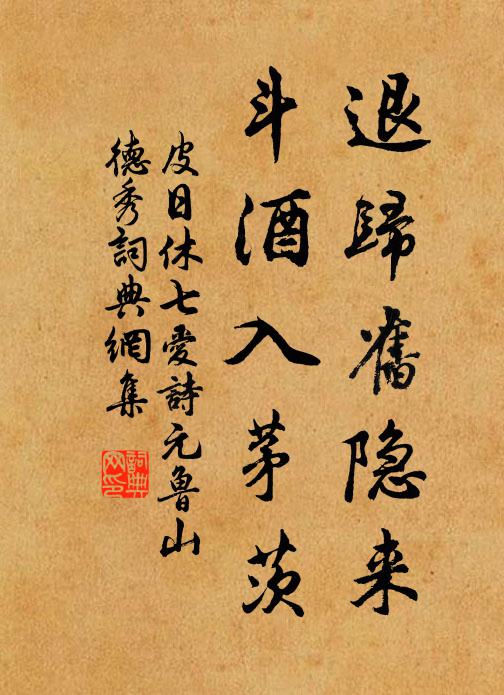 退歸舊隐来
斗酒入茅茨
皮日休七愛詩元魯山
德秀詞典網集
詞典網印